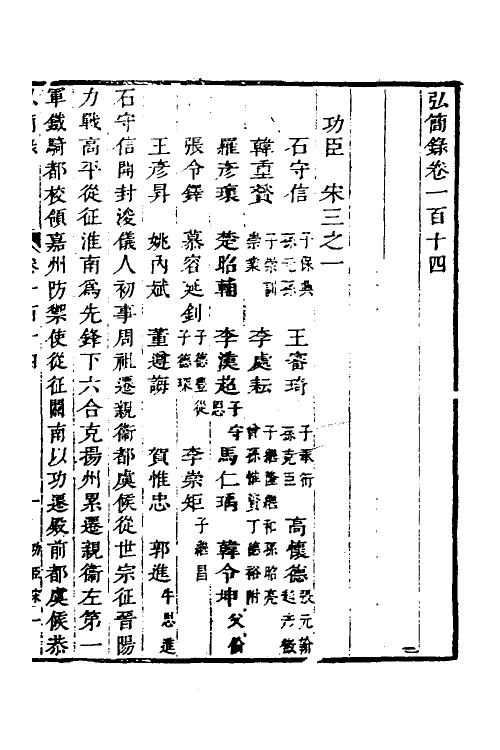 弘簡錄卷一百十四
功臣　宋三之一
石守信 子保興 孫元孫　王審琦 子承衍 孫克臣　高懷德 張元翰 趙彥徽
韓重贇 子崇訓 崇業　李處耘 子繼隆繼和孫昭亮 曾孫惟賢丁德裕附
羅彥瓌　楚昭輔　李漢超 子守恩　馬仁瑀　韓令坤 父倫
張令鐸　慕容延釗 子德豐從子德琛　李崇矩 子繼昌
王彥昇　姚內斌　董遵誨　賀惟忠　郭進 牛思進
石守信開封浚儀人初事周祖遷親衛都虞候從世宗征晉陽
力戰高平從征淮南為先鋒下六合克揚州累遷親衛左第一
軍鐵騎都校領嘉州防禦使從征關南以功遷殿前都虞候恭
卷一百十四　一　功臣宋一